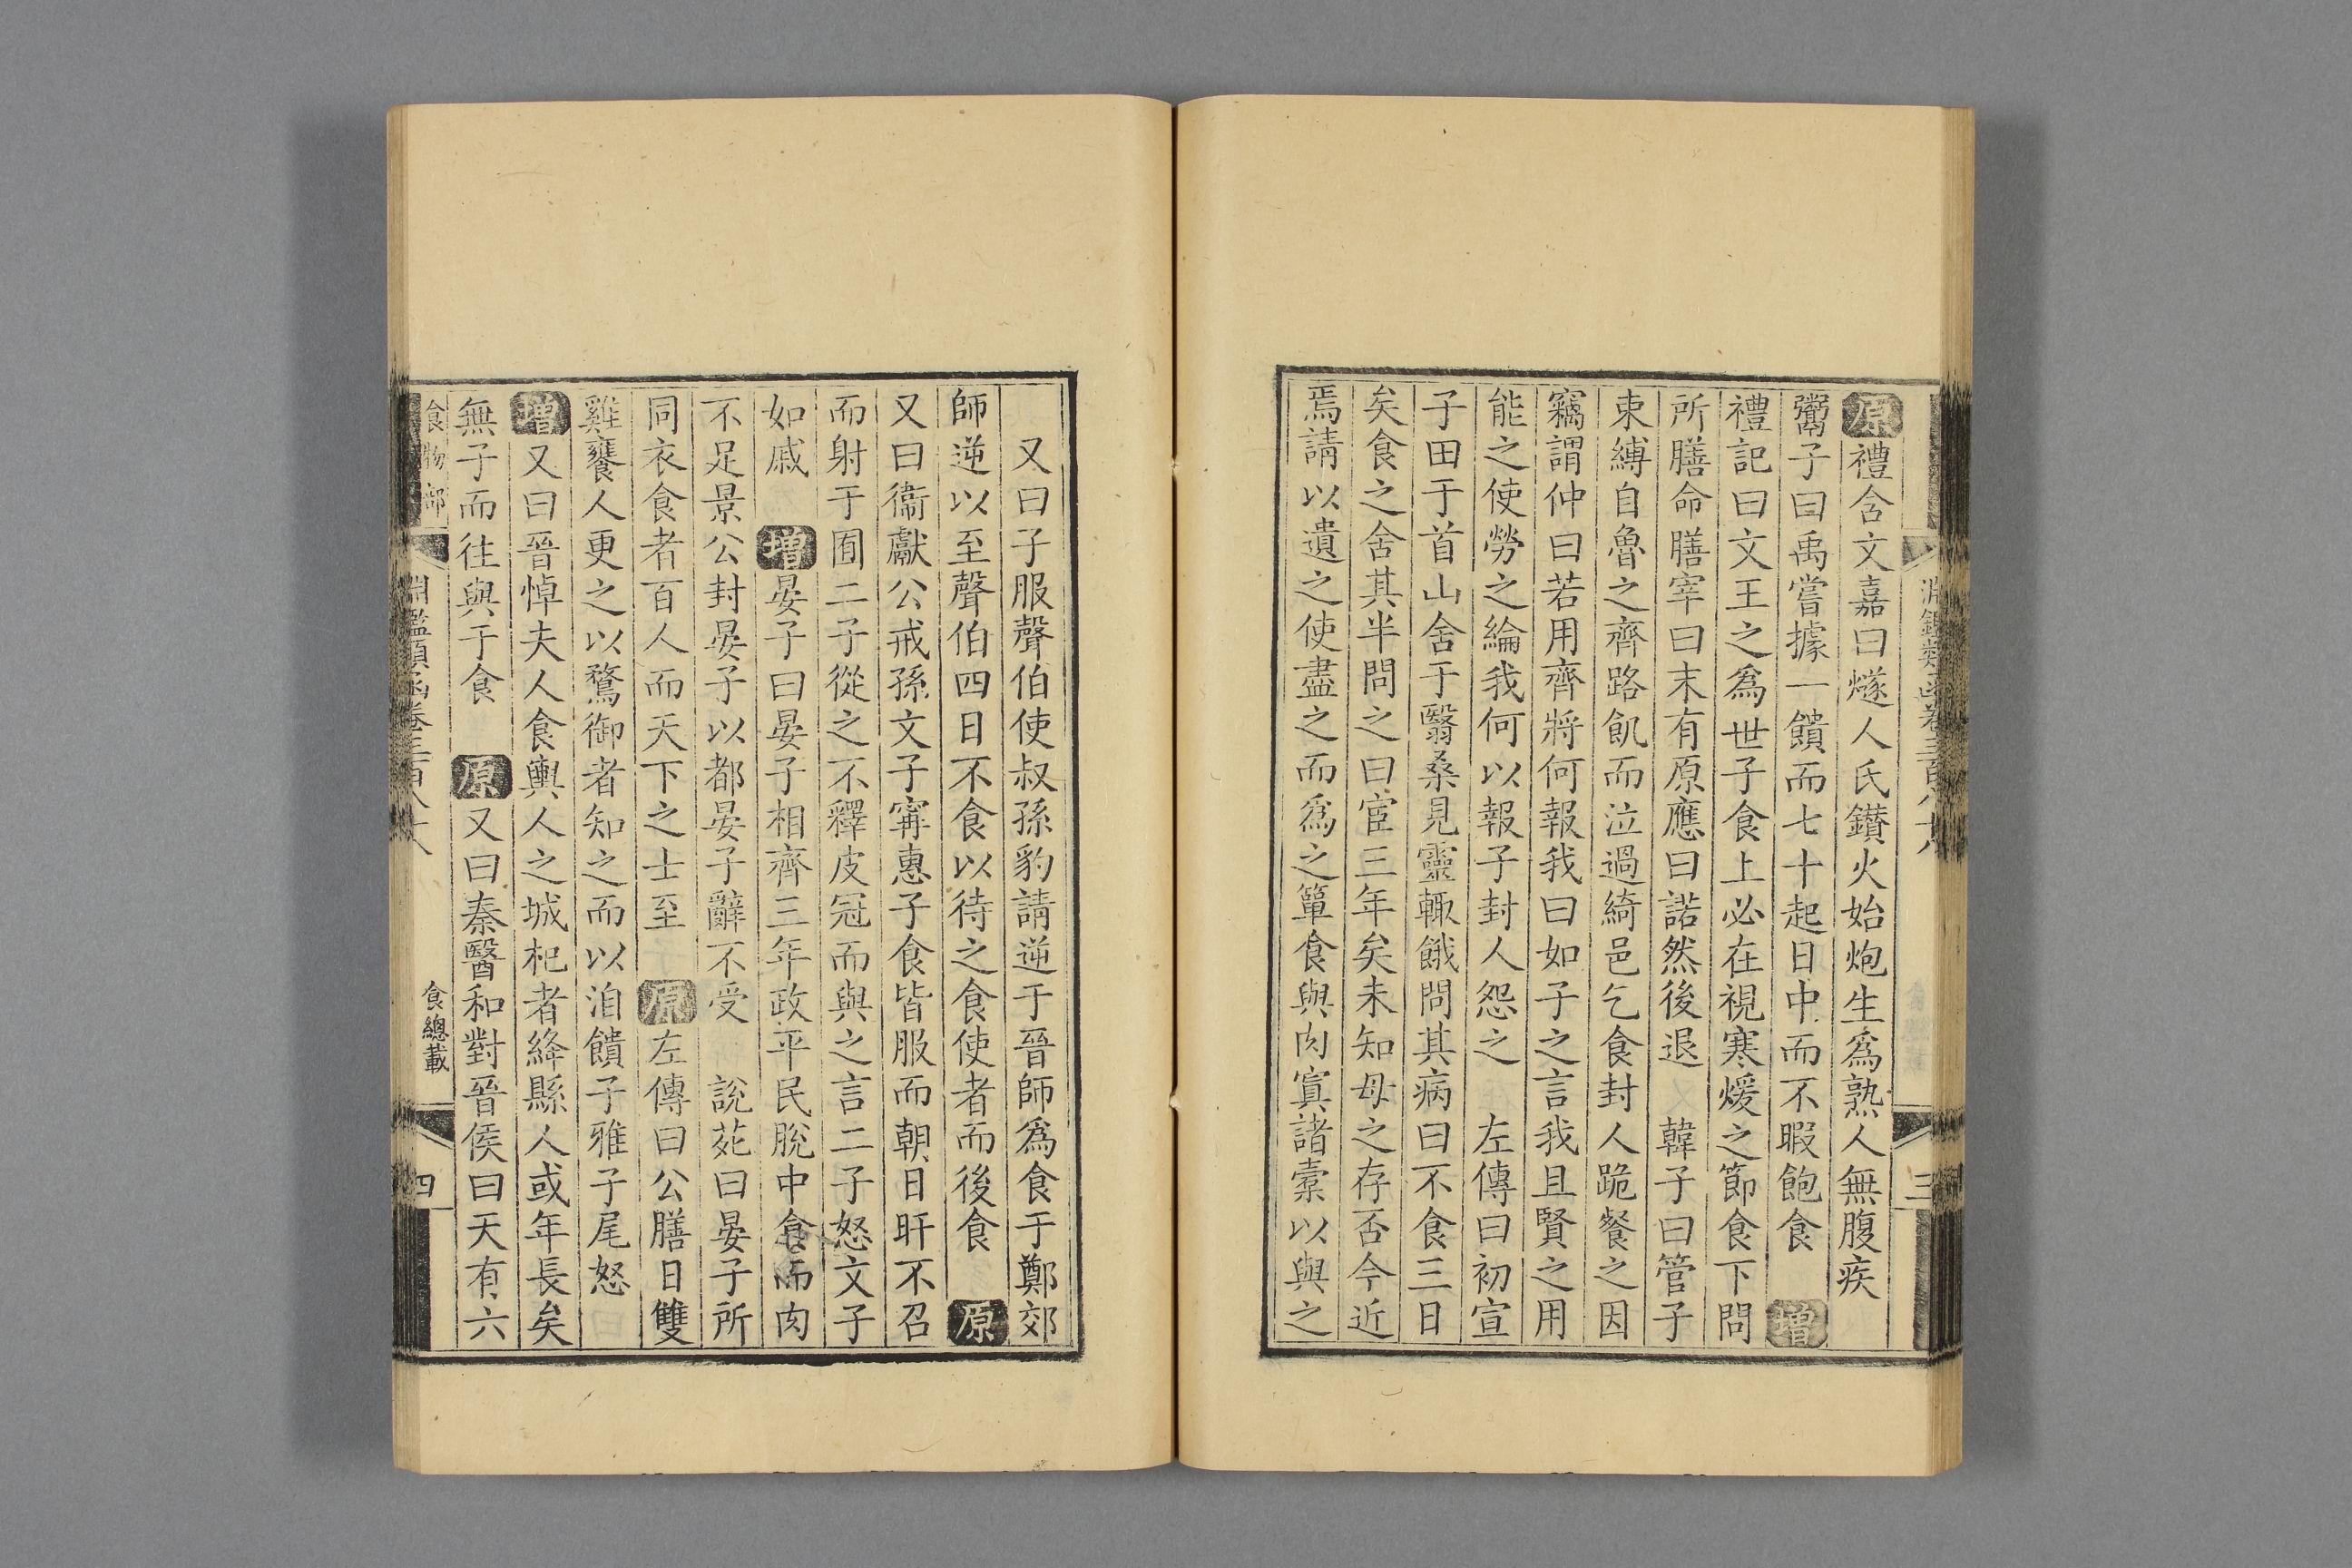 原禮含文嘉曰燧人氏鑚火始炮生爲熟人無腹疾
鬻子曰禹嘗據一饋而七十起日中而不暇飽食　增
禮記曰文王之爲世子食上必在視寒煖之節食下問
所膳命膳宰曰末有原應曰諾然後退　韓子曰管子
束縛自魯之齊路飢而泣過綺邑乞食封人跪餐之因
竊謂仲曰若用齊將何報我曰如子之言我且賢之用
能之使勞之綸我何以報子封人怨之　左傳曰初宣
子田于首山舍于翳桑見靈輒餓問其病曰不食三日
矣食之舍其半問之曰宦三年矣未知母之存否今近
焉請以遺之使盡之而爲之簞食與肉寘諸橐以與之
淵鑑類函卷三百八十八
三
又曰子服聲伯使叔孫豹請逆于晉師爲食于鄭郊
師逆以至聲伯四日不食以待之食使者而後食　原
又曰衞獻公戒孫文子甯惠子食皆服而朝日旰不召
而射于囿二子從之不釋皮冠而與之言二子怒文子
如戚　增晏子曰晏子相齊三年政平民脫中食而肉
不足景公封晏子以都晏子辭不受　說苑曰晏子所
同衣食者百人而天下之士至　原左傳曰公膳日雙
雞饔人更之以鶩御者知之而以洎饋子雅子尾怒
增又曰晉悼夫人食輿人之城杞者絳縣人或年長矣
無子而往與于食　原又曰秦醫和對晉侯曰天有六
食物部
淵鑑類函卷三百八十八
食總載
四